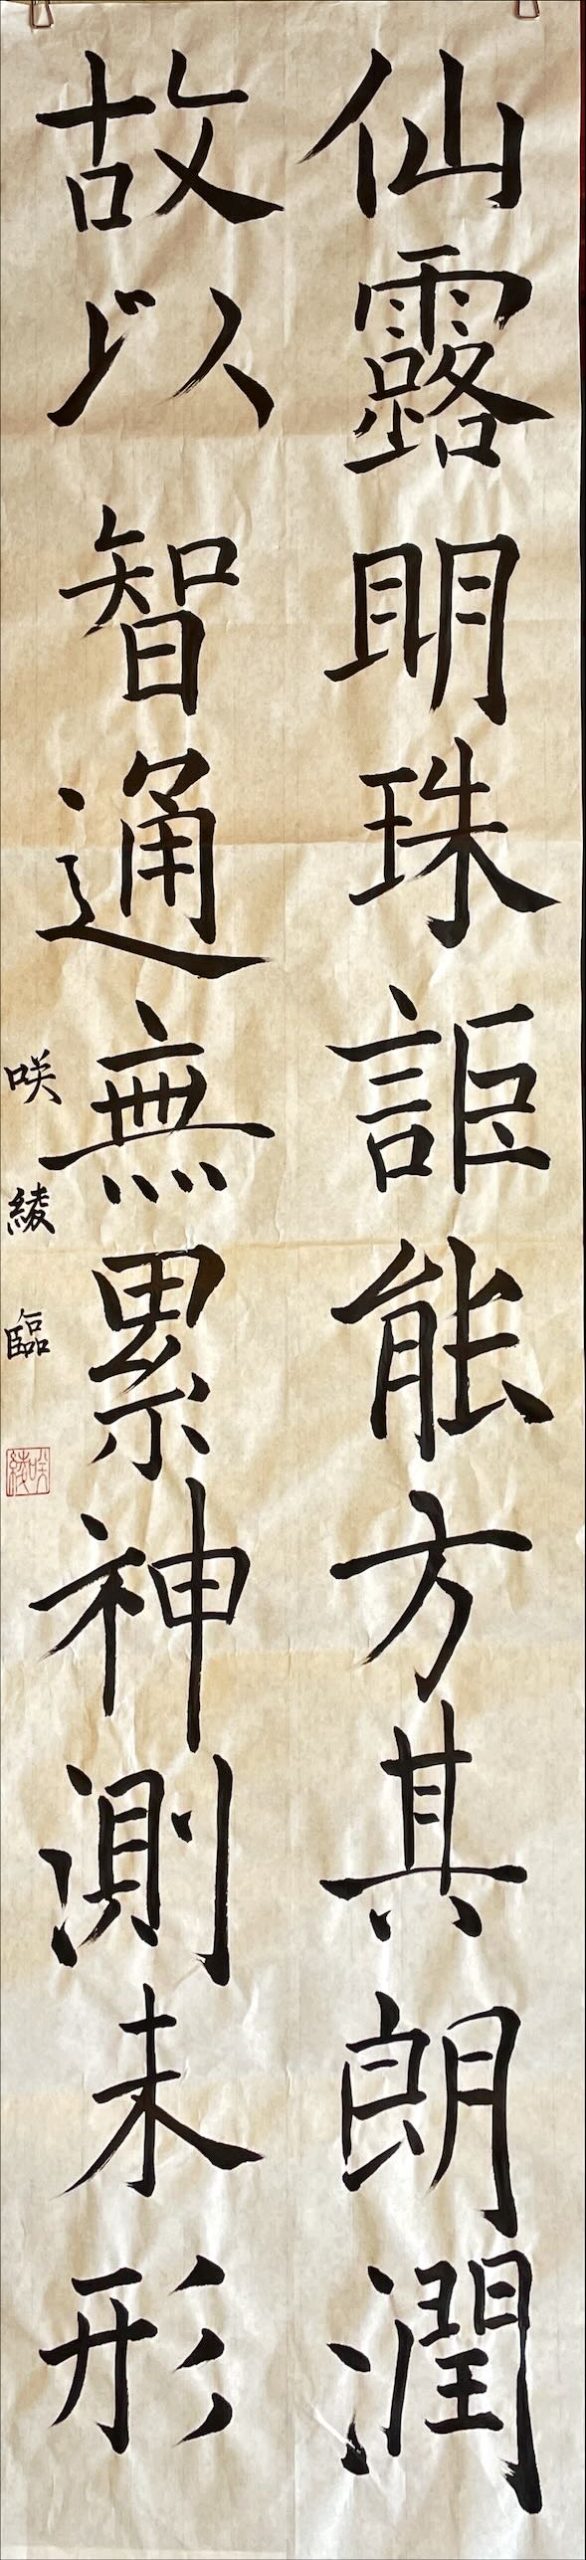 仙露明珠詎能方其朗潤
故以智通無累神測未形
咲綾臨
咲綾